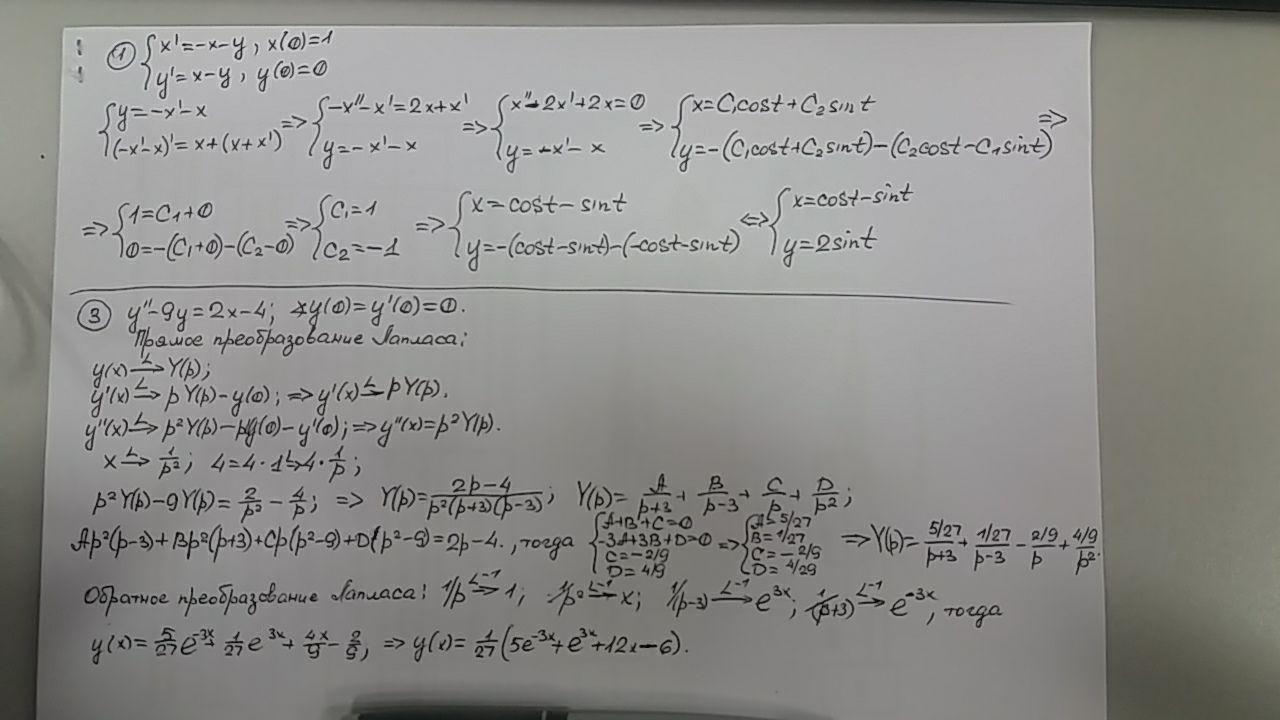 ① { x' = -x - y, x(0)=1
{ y' = x - y, y(0)=0
{ y = -x' - x => { -x'' - x' = 2x + x' => { x'' + 2x' + 2x = 0 => { x = C₁cost + C₂sint =>
{ (-x'-x)' = x + (x + x') { y = -x' - x { y = -x' - x { y = -(C₁cost + C₂sint) - (C₂cost - C₁sint)
=> { 1 = C₁ + 0 => { C₁ = 1 => { x = cost - sint <=> { x = cost - sint
{ 0 = -(C₁+0) - (C₂-0) { C₂ = -1 { y = -(cost - sint) - (-cost - sint) { y = 2sint
③ y'' - 9y = 2x - 4; y(0) = y'(0) = 0.
Прямое преобразование Лапласа:
y(x) =L> Y(p);
y'(x) =L> pY(p) - y(0); => y'(x) =L> pY(p).
y''(x) =L> p²Y(p) - py(0) - y'(0); => y''(x) = p²Y(p).
x =L> 1/p²; 4 = 4·1 => 4·1/p;
p²Y(p) - 9Y(p) = 2/p² - 4/p; => Y(p) = (2p-4)/(p²(p+3)(p-3)); Y(p) = A/(p+3) + B/(p-3) + C/p + D/p²;
Ap²(p-3) + Bp²(p+3) + Cp(p²-9) + D(p²-9) = 2p - 4., тогда { A+B+C=0 { -3A+3B+D=0 { C=-2/9 { D=4/9 => { A=5/27 { B=1/27 { C=-2/9 { D=4/29 => Y(p) = 5/27/(p+3) + 1/27/(p-3) - 2/9/p + 4/9/p².
Обратное преобразование Лапласа: 1/p =L⁻¹> 1; 1/p² =L⁻¹> x; 1/(p-3) =L⁻¹> e³ˣ; 1/(p+3) =L⁻¹> e⁻³ˣ, тогда
y(x) = 5/27 e⁻³ˣ + 1/27 e³ˣ + 4x/9 - 2/9, => y(x) = 1/27 (5e⁻³ˣ + e³ˣ + 12x - 6).